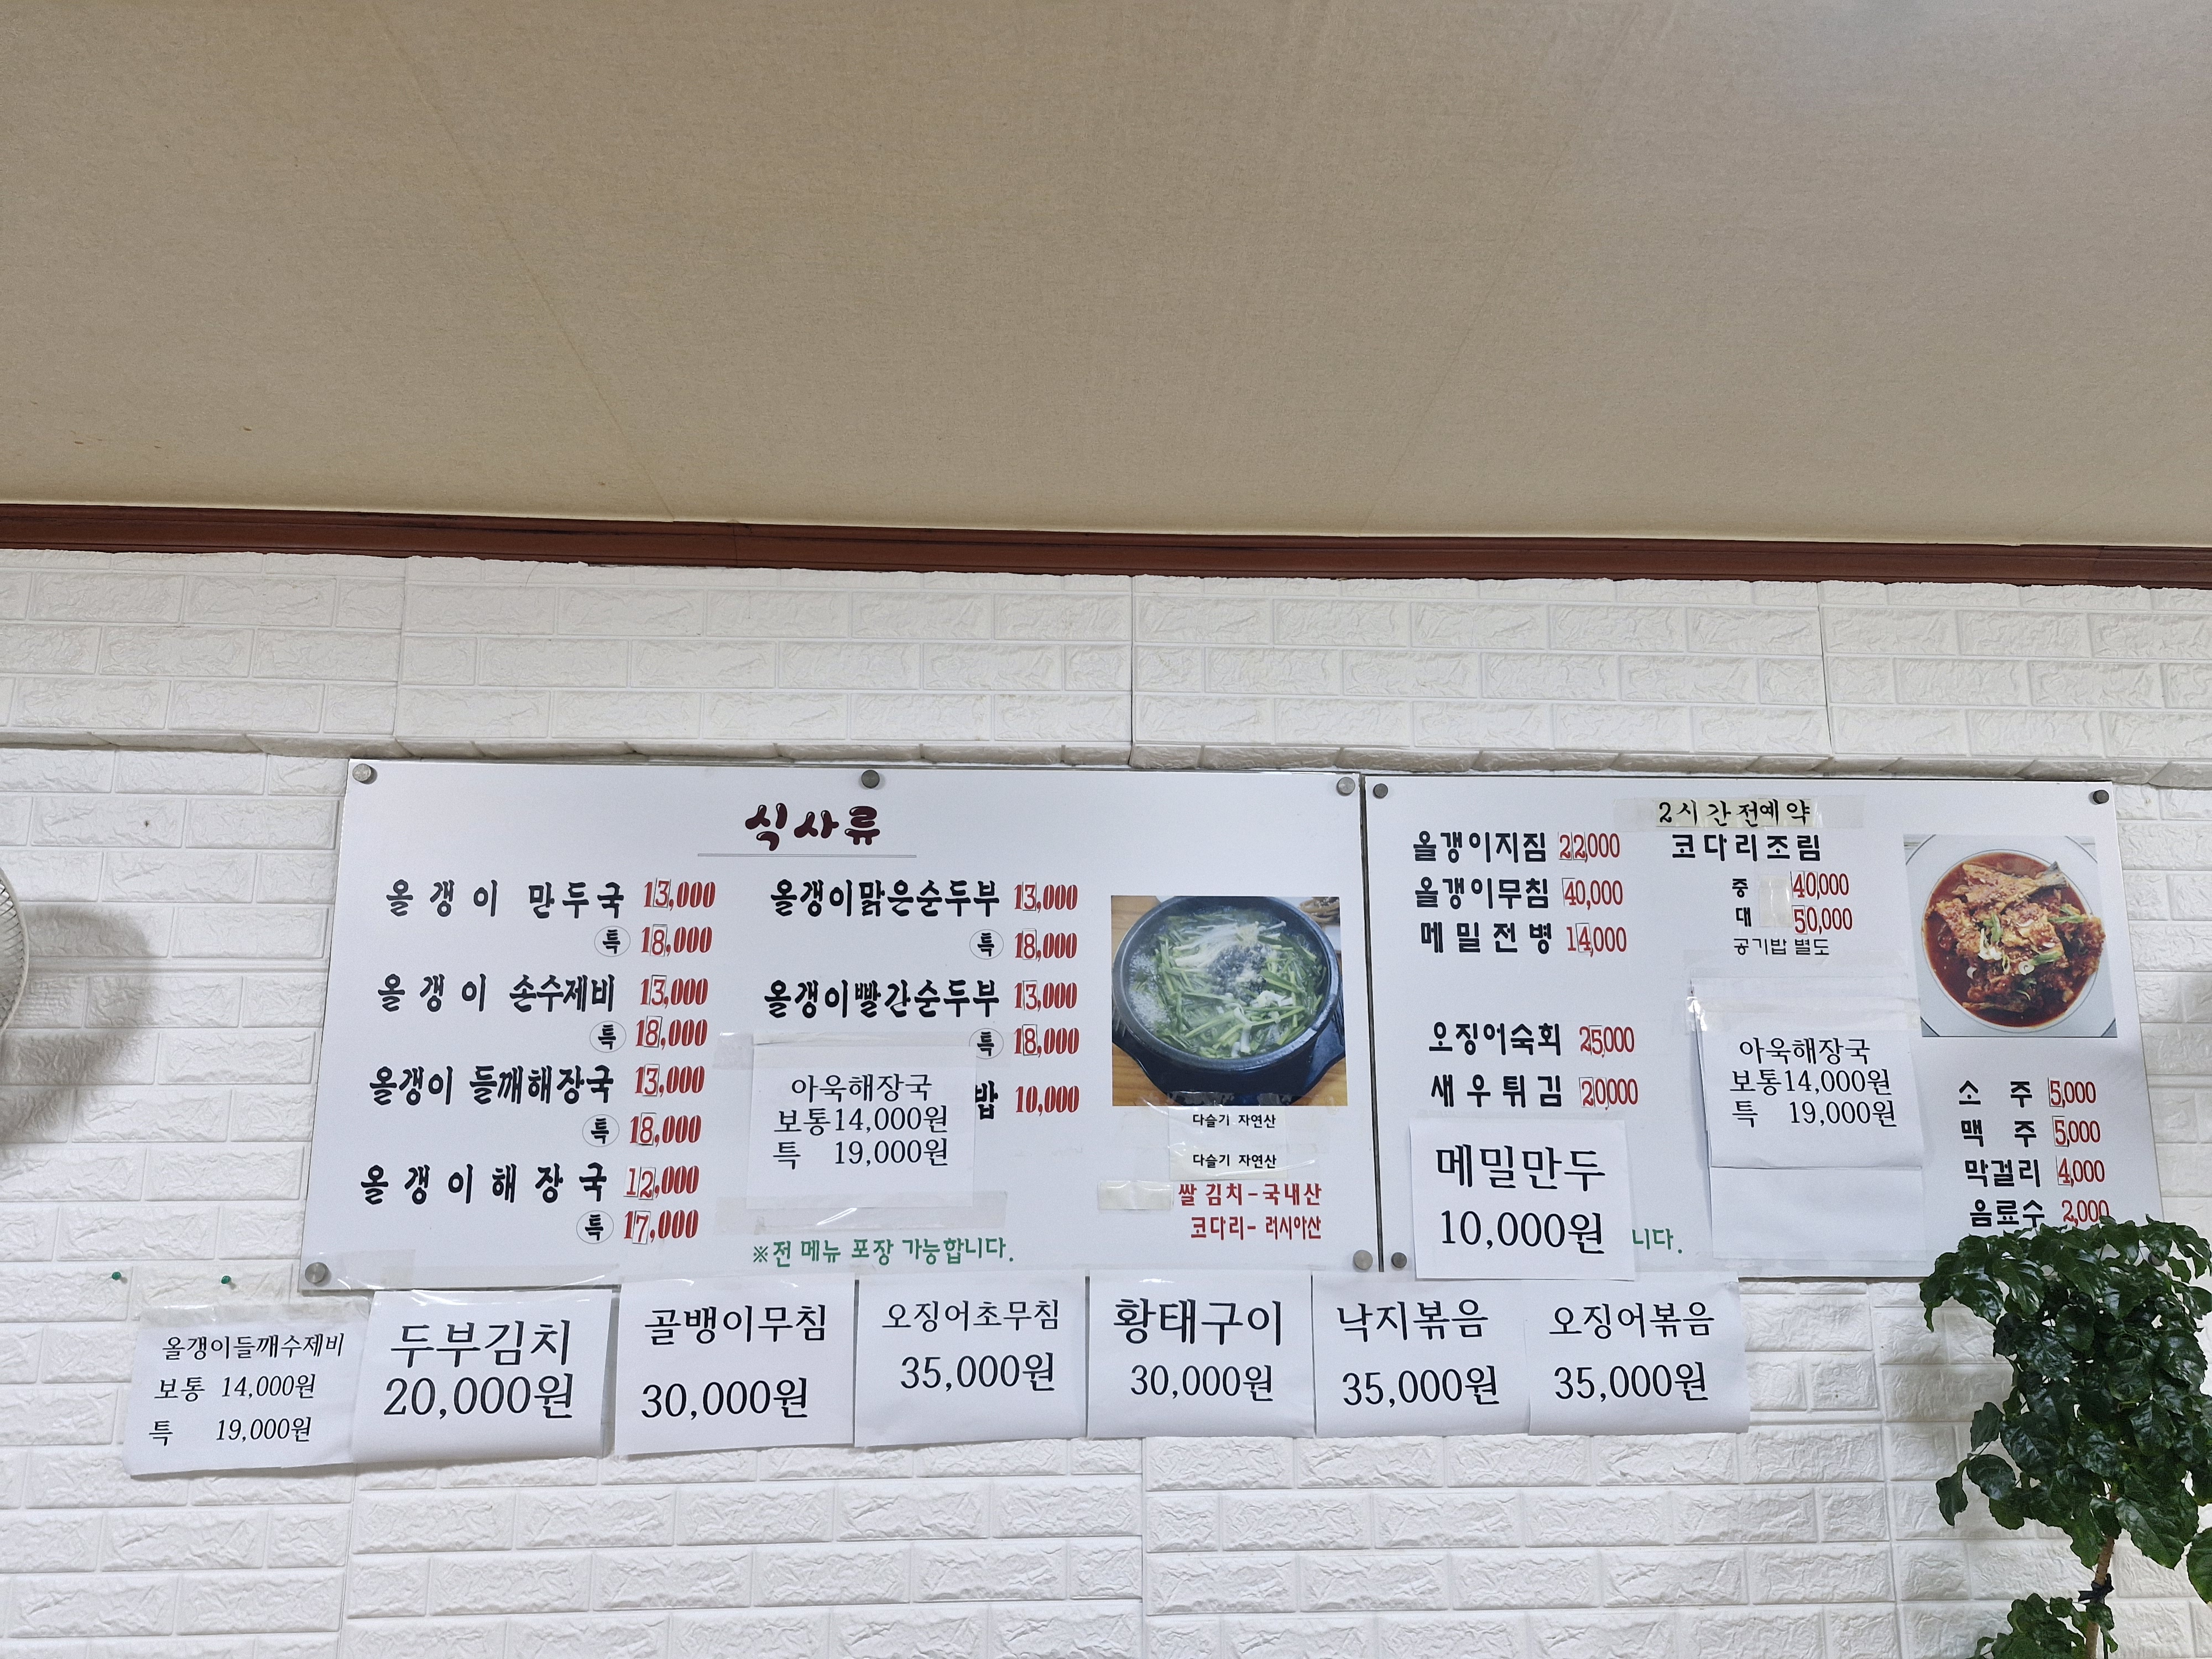 식사류
올갱이 만두국 13,000
특 18,000
올갱이 손수제비 13,000
특 18,000
올갱이 들깨해장국 13,000
특 18,000
올갱이해장국 12,000
특 17,000
올갱이맑은순두부 13,000
특 18,000
올갱이빨간순두부 13,000
특 18,000
밥 10,000
아욱해장국
보통14,000원
특 19,000원
※전 메뉴 포장 가능합니다.
다슬기 자연산
다슬기 자연산
쌀 김치-국내산
코다리- 러시아산
올갱이지짐 22,000
올갱이무침 40,000
메밀전병 14,000
오징어숙회 25,000
새우튀김 20,000
메밀만두
10,000원
니다.
2시간전예약
코다리조림
중 40,000
대 50,000
공기밥 별도
아욱해장국
보통14,000원
특 19,000원
소주 5,000
맥주 5,000
막걸리 4,000
음료수 2,000
올갱이들깨수제비
보통 14,000원
특 19,000원
두부김치
20,000원
골뱅이무침
30,000원
오징어초무침
35,000원
황태구이
30,000원
낙지볶음
35,000원
오징어볶음
35,000원